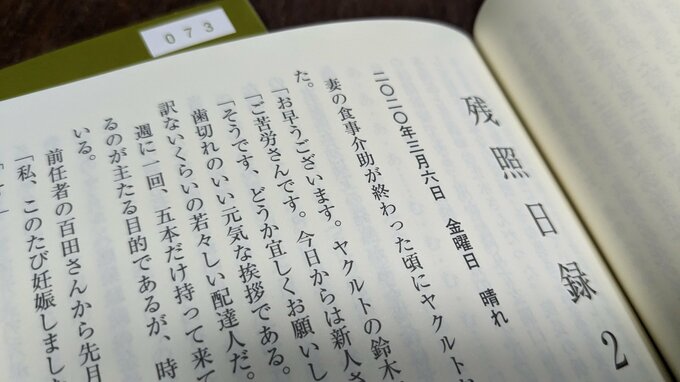 073
残照日録 2
二〇二〇年三月六日 金曜日 晴れ
妻の食事介助が終わった頃にヤクルト
た。
「お早うございます。ヤクルトの鈴木
「ご苦労さんです。今日からは新人さ
「そうです、どうか宜しくお願いし
歯切れのいい元気な挨拶である。
訳ないくらいの若々しい配達人だ。
週に一回、五本だけ持って来て
るのが主たる目的であるが、時
いる。
前任者の百田さんから先月
「私、このたび妊娠しました